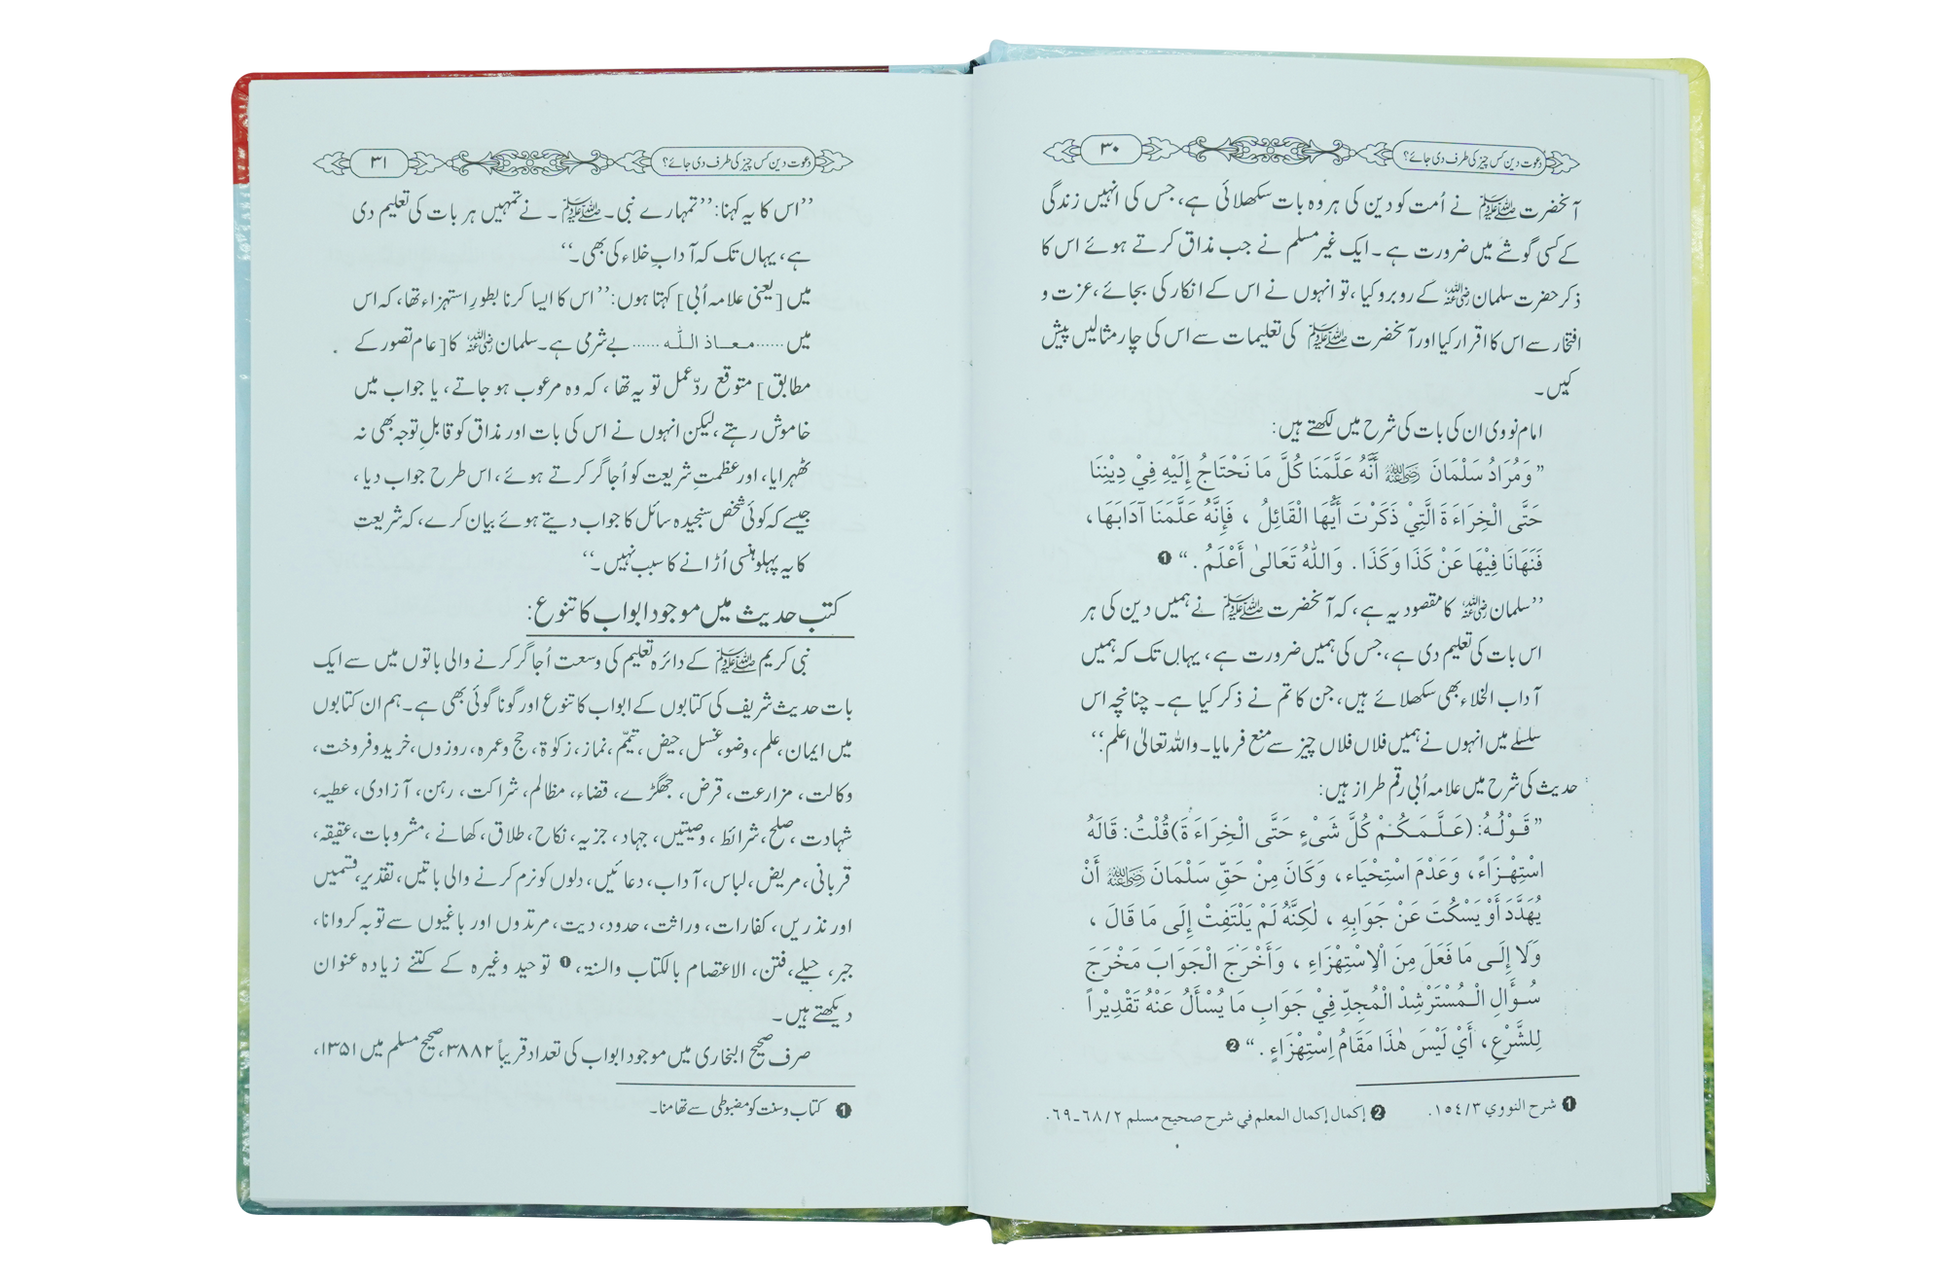 دعوت دین کس چیز کی طرف دی جائے؟ ۳۰
آنحضرت ﷺ نے اُمت کو دین کی ہر وہ بات سکھلائی ہے، جس کی انہیں زندگی
کے کسی گوشے میں ضرورت ہے۔ ایک غیر مسلم نے جب مذاق کرتے ہوئے اس کا
ذکر حضرت سلمان رضی اللہ عنہ کے روبرو کیا، تو انہوں نے اس کے انکار کی بجائے، عزت و
افتخار سے اس کا اقرار کیا اور آنحضرت ﷺ کی تعلیمات سے اس کی چار مثالیں پیش
کیں۔
امام نووی ان کی بات کی شرح میں لکھتے ہیں:
”وَمُرَادُ سَلْمَانَ رضی اللہ عنہ أَنَّهُ عَلَّمَنَا كُلَّ مَا نَحْتَاجُ إِلَيْهِ فِيْ دِيْنِنَا
حَتَّى الْخِرَاءَةَ الَّتِيْ ذَكَرْتَ أَيُّهَا الْقَائِلُ ، فَإِنَّهُ عَلَّمَنَا آدَابَهَا،
فَنَهَانَا فِيْهَا عَنْ كَذَا وَكَذَا. وَاللّٰهُ تَعَالىٰ أَعْلَمُ.“ ❶
’’سلمان رضی اللہ عنہ کا مقصود یہ ہے، کہ آنحضرت ﷺ نے ہمیں دین کی ہر
اس بات کی تعلیم دی ہے، جس کی ہمیں ضرورت ہے، یہاں تک کہ ہمیں
آداب الخلاء بھی سکھلائے ہیں، جن کا تم نے ذکر کیا ہے۔ چنانچہ اس
سلسلے میں انہوں نے ہمیں فلاں فلاں چیز سے منع فرمایا۔ واللہ تعالیٰ اعلم.‘‘
حدیث کی شرح میں علامہ اُبی رقم طراز ہیں:
”قَوْلُهُ: (عَلَّمَكُمْ كُلَّ شَيْءٍ حَتَّى الْخِرَاءَةَ) قُلْتُ: قَالَهُ
اسْتِهْزَاءً، وَعَدْمَ اسْتِحْيَاء، وَكَانَ مِنْ حَقِّ سَلْمَانَ رضی اللہ عنہ أَنْ
يُهَدَّدَ أَوْ يَسْكُتَ عَنْ جَوَابِهِ ، لٰكِنَّهُ لَمْ يَلْتَفِتْ إِلَى مَا قَالَ ،
وَلَا إِلَى مَا فَعَلَ مِنَ الْاِسْتِهْزَاءِ ، وَأَخْرَجَ الْجَوَابَ مَخْرَجَ
سُؤَالِ الْمُسْتَرْشِدْ الْمُجِدِّ فِيْ جَوَابِ مَا يُسْأَلُ عَنْهُ تَقْدِيْراً
لِلشَّرْعِ، أَيْ لَيْسَ هٰذَا مَقَامُ اِسْتِهْزَاءٍ.“ ❷
❶ شرح النووي ١٥٤/٣. ❷ إكمال إكمال المعلم في شرح صحيح مسلم ٦٨/٢ـ٦٩.
دعوت دین کس چیز کی طرف دی جائے؟ ۳۱
’’اس کا یہ کہنا: ’’تمہارے نبی۔ ﷺ ۔ نے تمہیں ہر بات کی تعلیم دی
ہے، یہاں تک کہ آدابِ خلاء کی بھی۔‘‘
میں [یعنی علامہ اُبی] کہتا ہوں: ’’اس کا ایسا کرنا بطورِ استہزاء تھا، کہ اس
میں ...... معاذ اللّٰہ ...... بے شرمی ہے۔ سلمان رضی اللہ عنہ کا [عام تصور کے
مطابق] متوقع ردّ عمل تو یہ تھا، کہ وہ مرعوب ہو جاتے، یا جواب میں
خاموش رہتے، لیکن انہوں نے اس کی بات اور مذاق کو قابلِ توجہ بھی نہ
ٹھہرایا، اور عظمتِ شریعت کو اُجاگر کرتے ہوئے، اس طرح جواب دیا،
جیسے کہ کوئی شخص سنجیدہ سائل کا جواب دیتے ہوئے بیان کرے، کہ شریعت
کا یہ پہلو ہنسی اُڑانے کا سبب نہیں۔‘‘
کتب حدیث میں موجود ابواب کا تنوع:
نبی کریم ﷺ کے دائرہ تعلیم کی وسعت اُجاگر کرنے والی باتوں میں سے ایک
بات حدیث شریف کی کتابوں کے ابواب کا تنوع اور گوناگوئی بھی ہے۔ ہم ان کتابوں
میں ایمان، علم، وضو، غسل، حیض، تیمّم، نماز، زکوٰۃ، حج وعمرہ، روزوں، خرید و فروخت،
وکالت، مزارعت، قرض، جھگڑے، قضاء، مظالم، شراکت، رہن، آزادی، عطیہ،
شہادت، صلح، شرائط، وصیتیں، جہاد، جزیہ، نکاح، طلاق، کھانے، مشروبات، عقیقہ،
قربانی، مریض، لباس، آداب، دعائیں، دلوں کو نرم کرنے والی باتیں، تقدیر، قسمیں
اور نذریں، کفارات، وراثت، حدود، دیت، مرتدوں اور باغیوں سے توبہ کروانا،
جبر، حیلے، فتن، الاعتصام بالکتاب والسنۃ، ❶ توحید وغیرہ کے کتنے زیادہ عنوان
دیکھتے ہیں۔
صرف صحیح البخاری میں موجود ابواب کی تعداد قریباً ۳۸۸۲، صحیح مسلم میں ۱۳۵۱،
❶ کتاب وسنت کو مضبوطی سے تھامنا۔